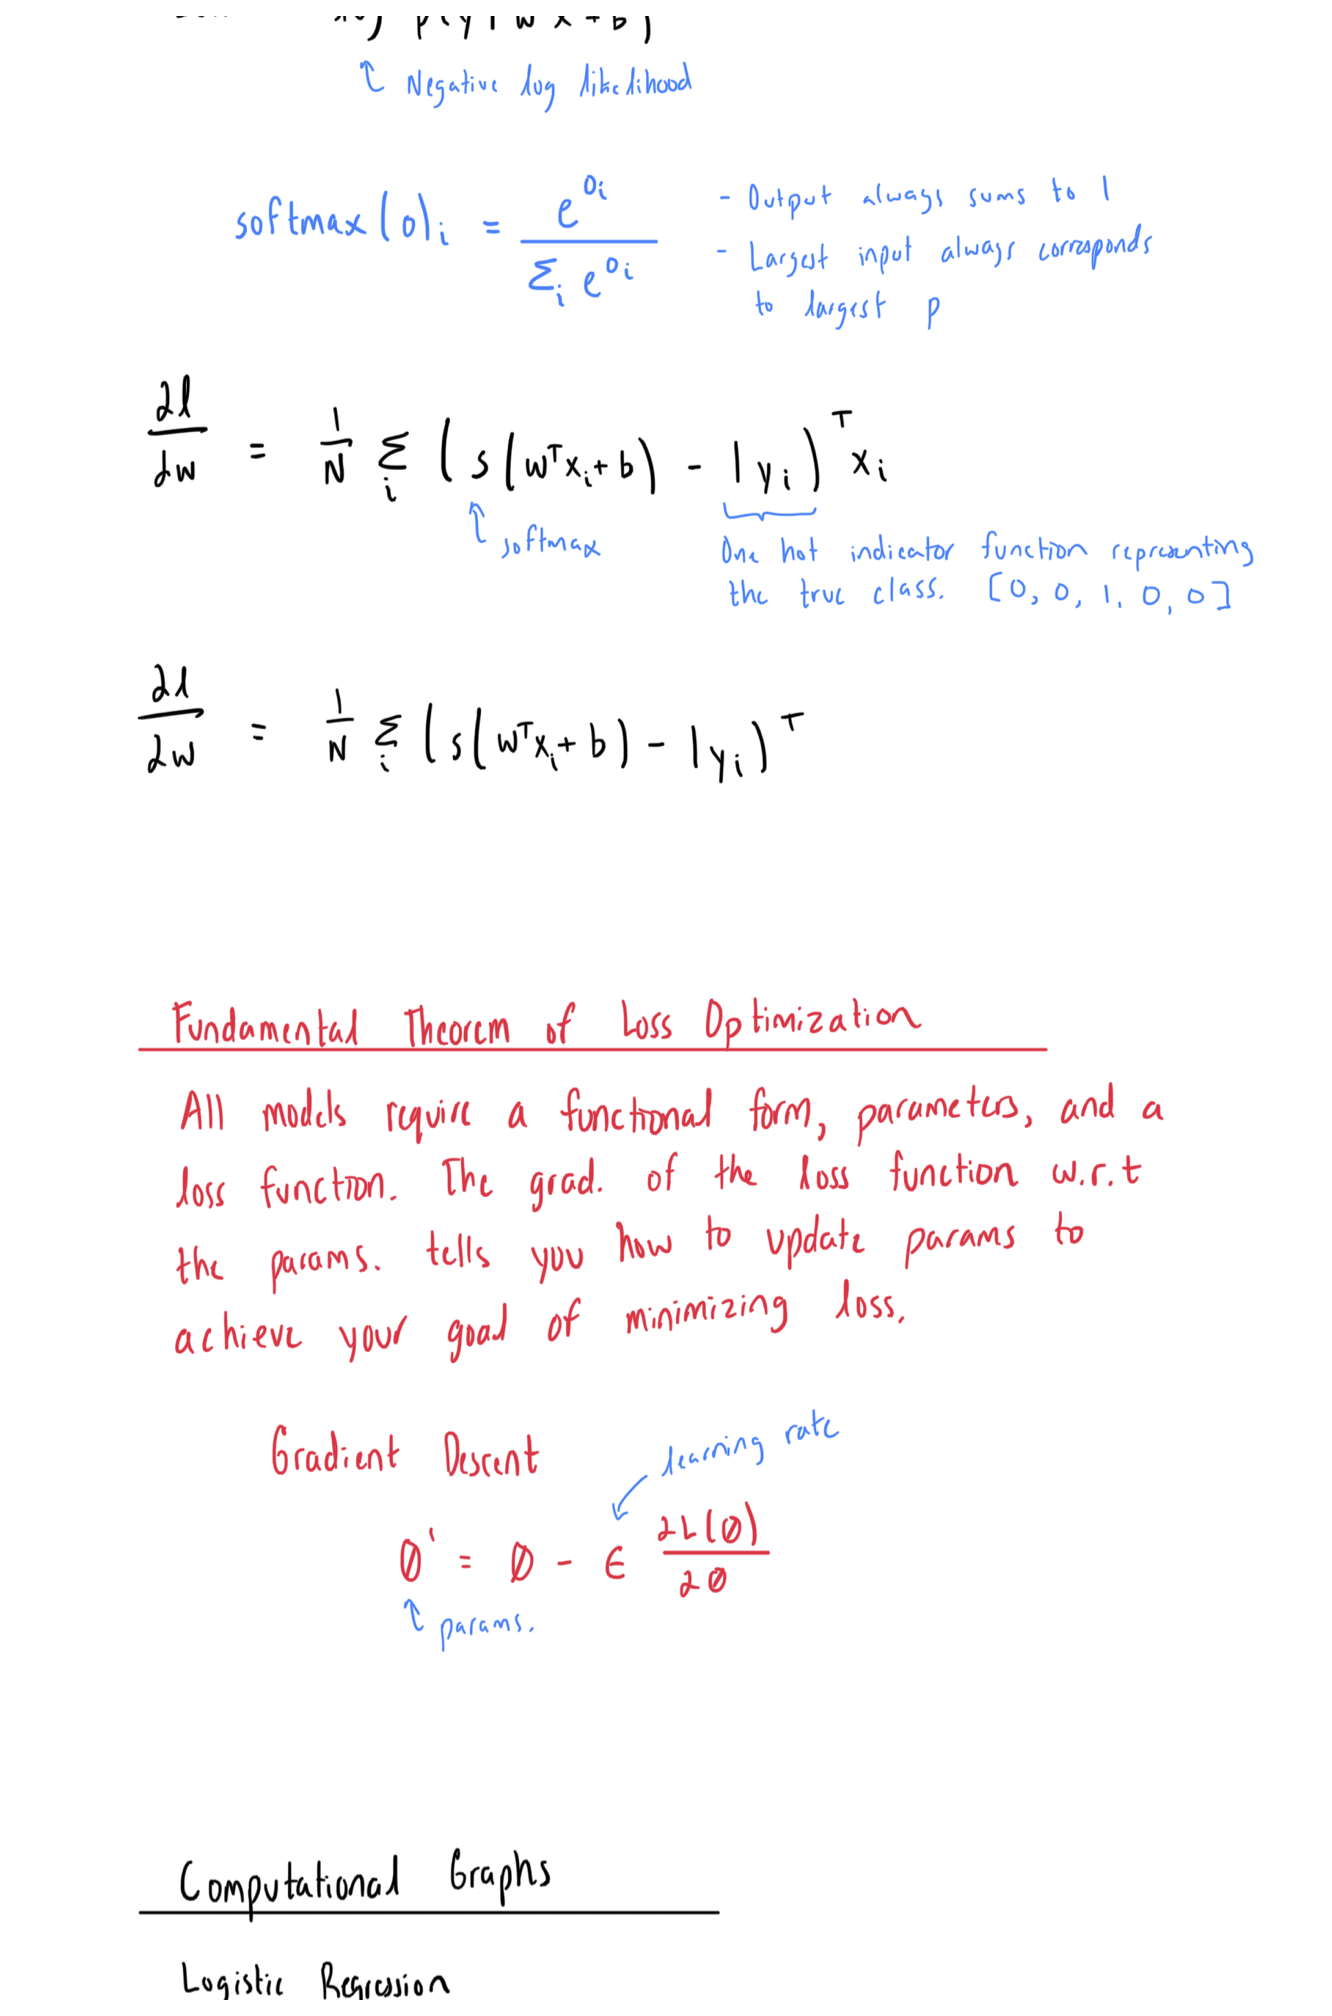 log p(y | w x + b)
↑ Negative log likelihood
softmax(o)ᵢ = e^(oᵢ) / Σᵢ e^(oᵢ)
- Output always sums to 1
- Largest input always corresponds
to largest p
∂l/∂w = 1/N Σᵢ (s(wᵀxᵢ + b) - 1yᵢ)ᵀ xᵢ
↑ softmax
One hot indicator function representing
the true class. [0, 0, 1, 0, 0]
∂l/∂w = 1/N Σᵢ (s(wᵀxᵢ + b) - 1yᵢ)ᵀ
Fundamental Theorem of Loss Optimization
All models require a functional form, parameters, and a
loss function. The grad. of the loss function w.r.t
the params. tells you how to update params to
achieve your goal of minimizing loss.
Gradient Descent
learning rate
θ' = θ - ϵ ∂L(θ)/∂θ
↑ params.
Computational Graphs
Logistic Regression